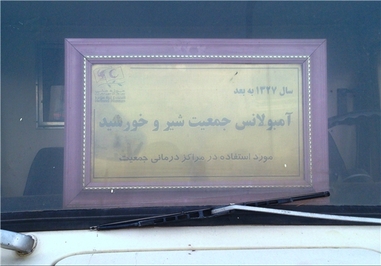 سال ۱۳۴۷ به بعد
آمبولانس جمعیت شیر و خورشید
مورد استفاده در مراکز درمانی جمعیت